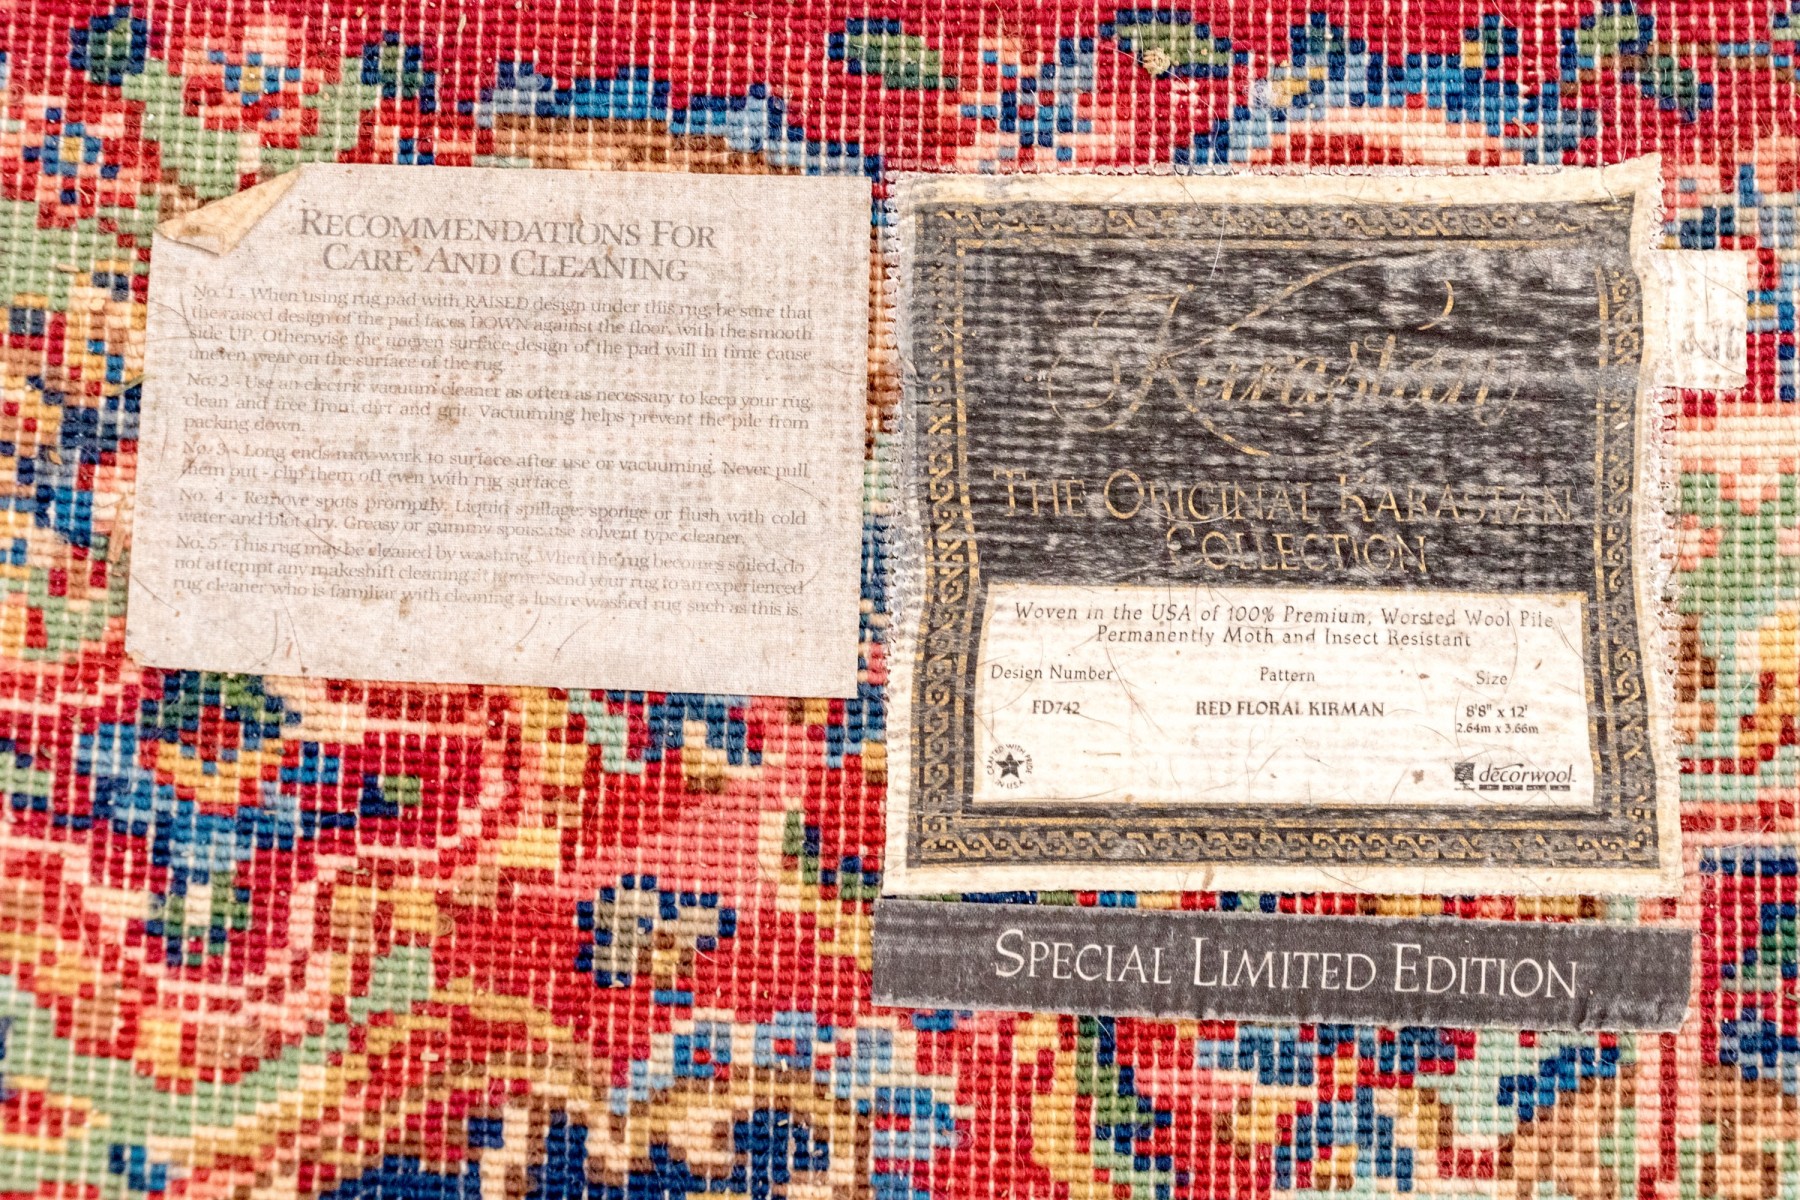 RECOMMENDATIONS FOR
CARE AND CLEANING
No. 1 - When using rug pad with RAISED design under this rug, be sure that
the raised design of the pad faces DOWN against the floor, with the smooth
side UP. Otherwise the uneven surface design of the pad will in time cause
uneven wear on the surface of the rug.
No. 2 - Use an electric vacuum cleaner as often as necessary to keep your rug
clean and free from dirt and grit. Vacuuming helps prevent the pile from
packing down.
No. 3 - Long ends may work to surface after use or vacuuming. Never pull
them out - clip them off even with rug surface.
No. 4 - Remove spots promptly. Liquid spillage: sponge or flush with cold
water and blot dry. Greasy or gummy spots: use solvent type cleaner.
No. 5 - This rug may be cleaned by washing. When the rug becomes soiled, do
not attempt any makeshift cleaning at home. Send your rug to an experienced
rug cleaner who is familiar with cleaning a lustre washed rug such as this is.
Karastan
THE ORIGINAL KARASTAN
COLLECTION
Woven in the USA of 100% Premium, Worsted Wool Pile
Permanently Moth and Insect Resistant
Design Number Pattern Size
FD742 RED FLORAL KIRMAN 8'8" x 12'
2.64m x 3.66m
CRAFTED WITH PRIDE IN USA
decorwool
SPECIAL LIMITED EDITION